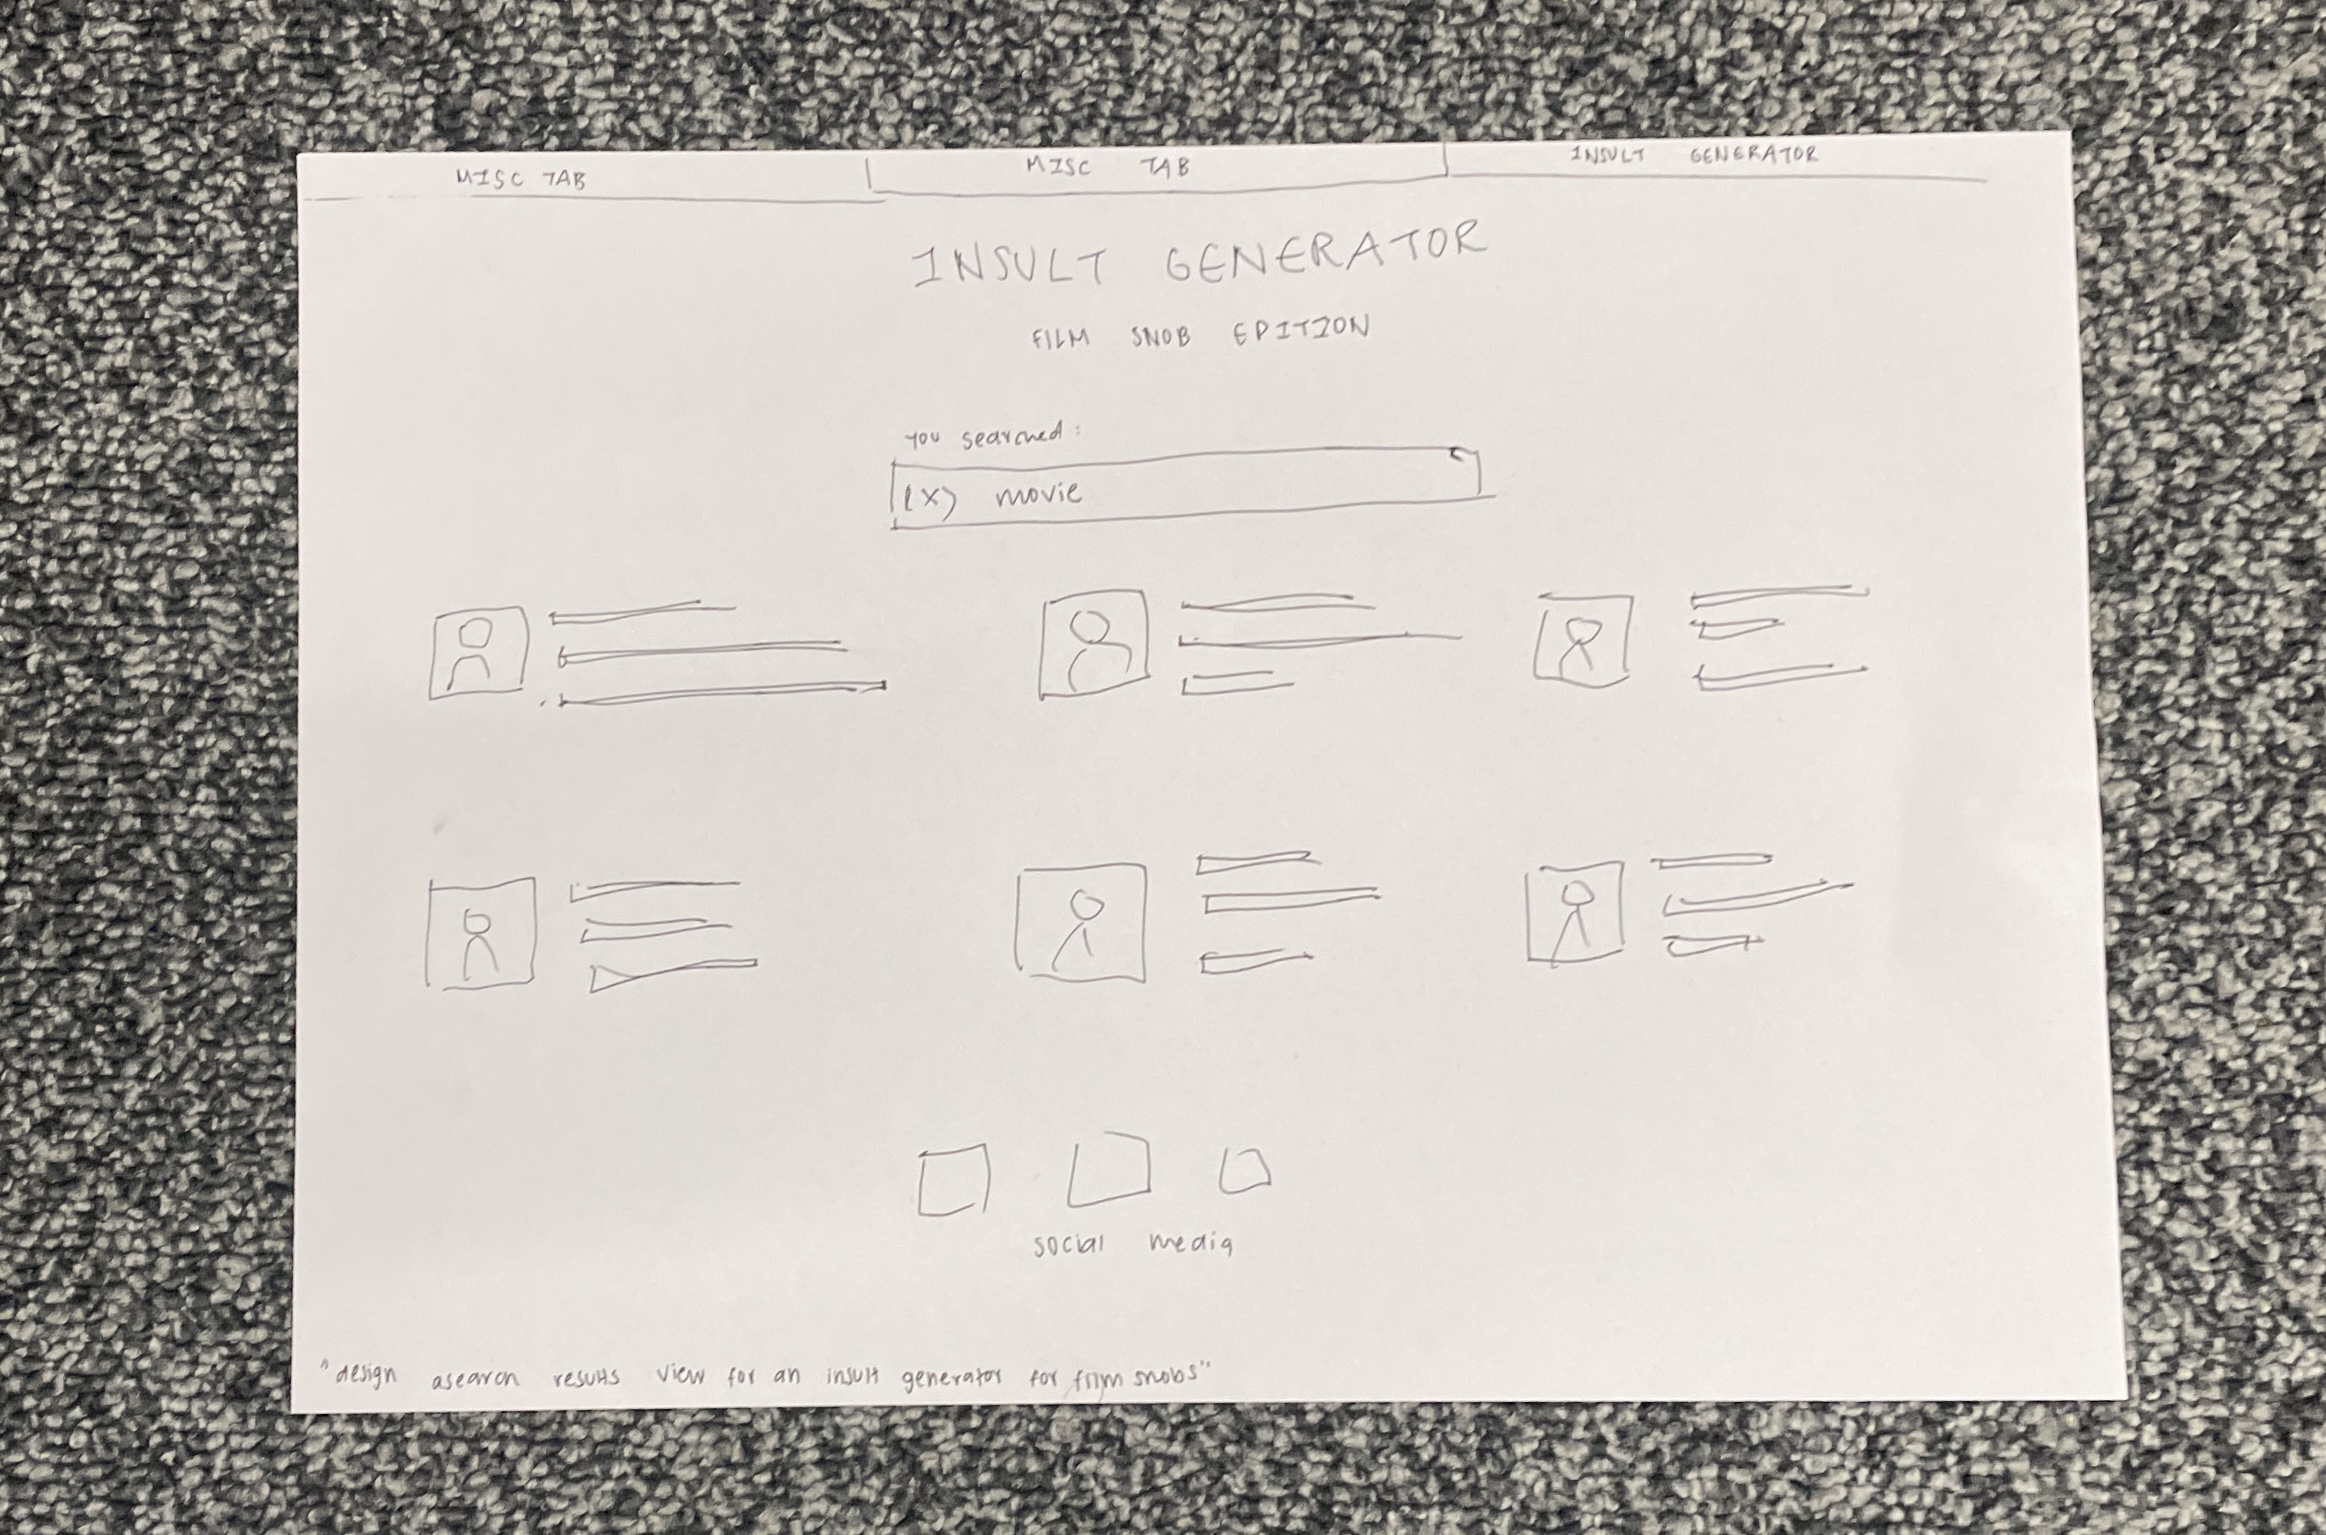 MISC TAB
MISC TAB
INSULT GENERATOR
INSULT GENERATOR
FILM SNOB EDITION
You searched:
(X) movie
social media
"design a search results view for an insult generator for film snobs"